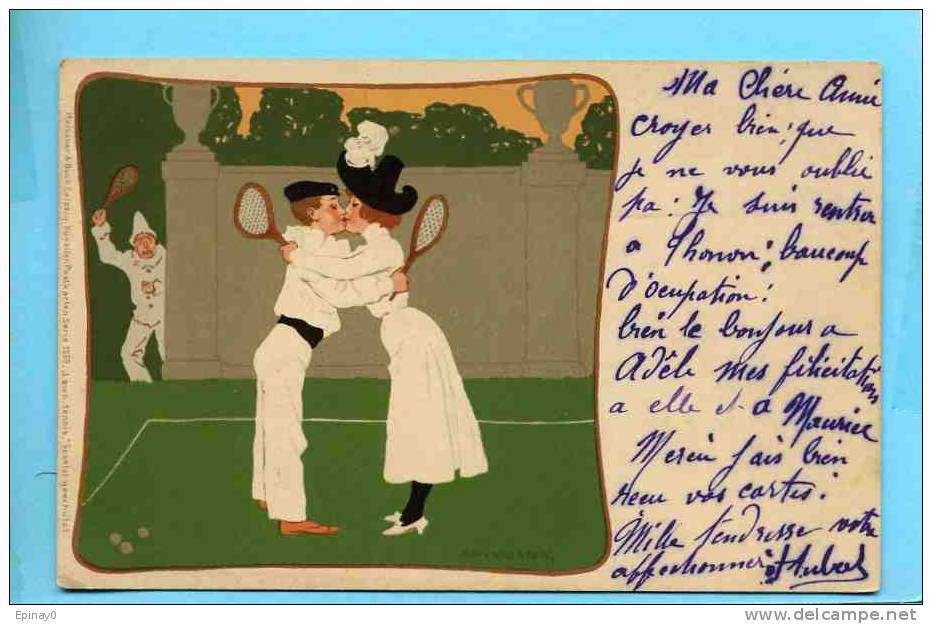 Ma Chère Amie
croyer bien que
je ne vous oublie
pa : Je suis rentrer
a Thonon, baucoup
d'ocupation !
bien le bonjour a
Adèle mes félicitations
a elle et a Maurice
Merçu fais bien
recu vos cartes :
Mille tendresse votre
affectionnée Aubert
Meissner & Buch Leipzig, Künstler-Postkarten Serie 1029. „Lawn tennis." Gesetzl. geschützt.
Epinay0
www.delcampe.net